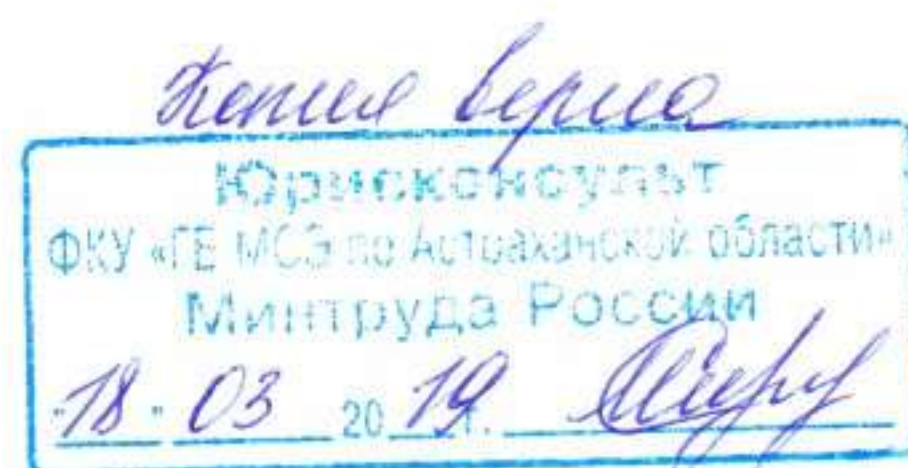 Копия верна
Юрисконсульт
ФКУ «ГБ МСЭ по Астраханской области»
Минтруда России
"18" 03 2019 г.